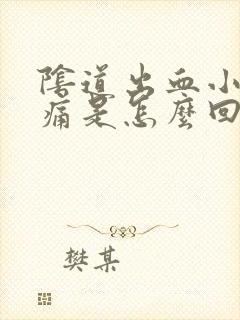 陰道出血小
痛是怎麼回
樊某